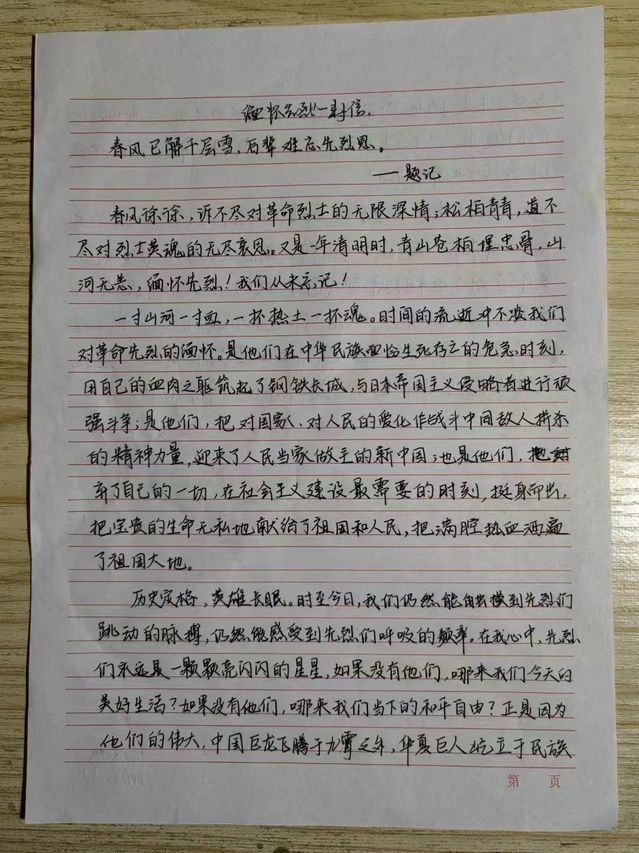 缅怀先烈一封信.
春风已解千层雪，后辈难忘先烈恩。
——题记
春风徐徐，诉不尽对革命烈士的无限深情；松柏青青，道不
尽对烈士英魂的无尽哀思。又是一年清明时，青山苍柏埋忠骨，山
河无恙，缅怀先烈！我们从未忘记！
一寸山河一寸血，一抔热土一抔魂。时间的流逝冲不淡我们
对革命先烈的缅怀。是他们在中华民族面临生死存亡的危急时刻，
用自己的血肉之躯筑起了钢铁长城，与日本帝国主义侵略者进行顽
强斗争；是他们，把对国家、对人民的爱化作战斗中同敌人拼杀
的精神力量，迎来了人民当家做主的新中国；也是他们，抛
弃了自己的一切，在社会主义建设最需要的时刻，挺身而出，
把宝贵的生命无私地献给了祖国和人民，把满腔热血洒遍
了祖国大地。
历史定格，英雄长眠。时至今日，我们仍然能摸到先烈们
跳动的脉搏，仍然能感受到先烈们呼吸的频率。在我心中，先烈
们永远是一颗颗亮闪闪的星星，如果没有他们，哪来我们今天的
美好生活？如果没有他们，哪来我们当下的和平自由？正是因为
他们的伟大，中国巨龙飞腾于九霄之年，华夏巨人屹立于民族
第 页